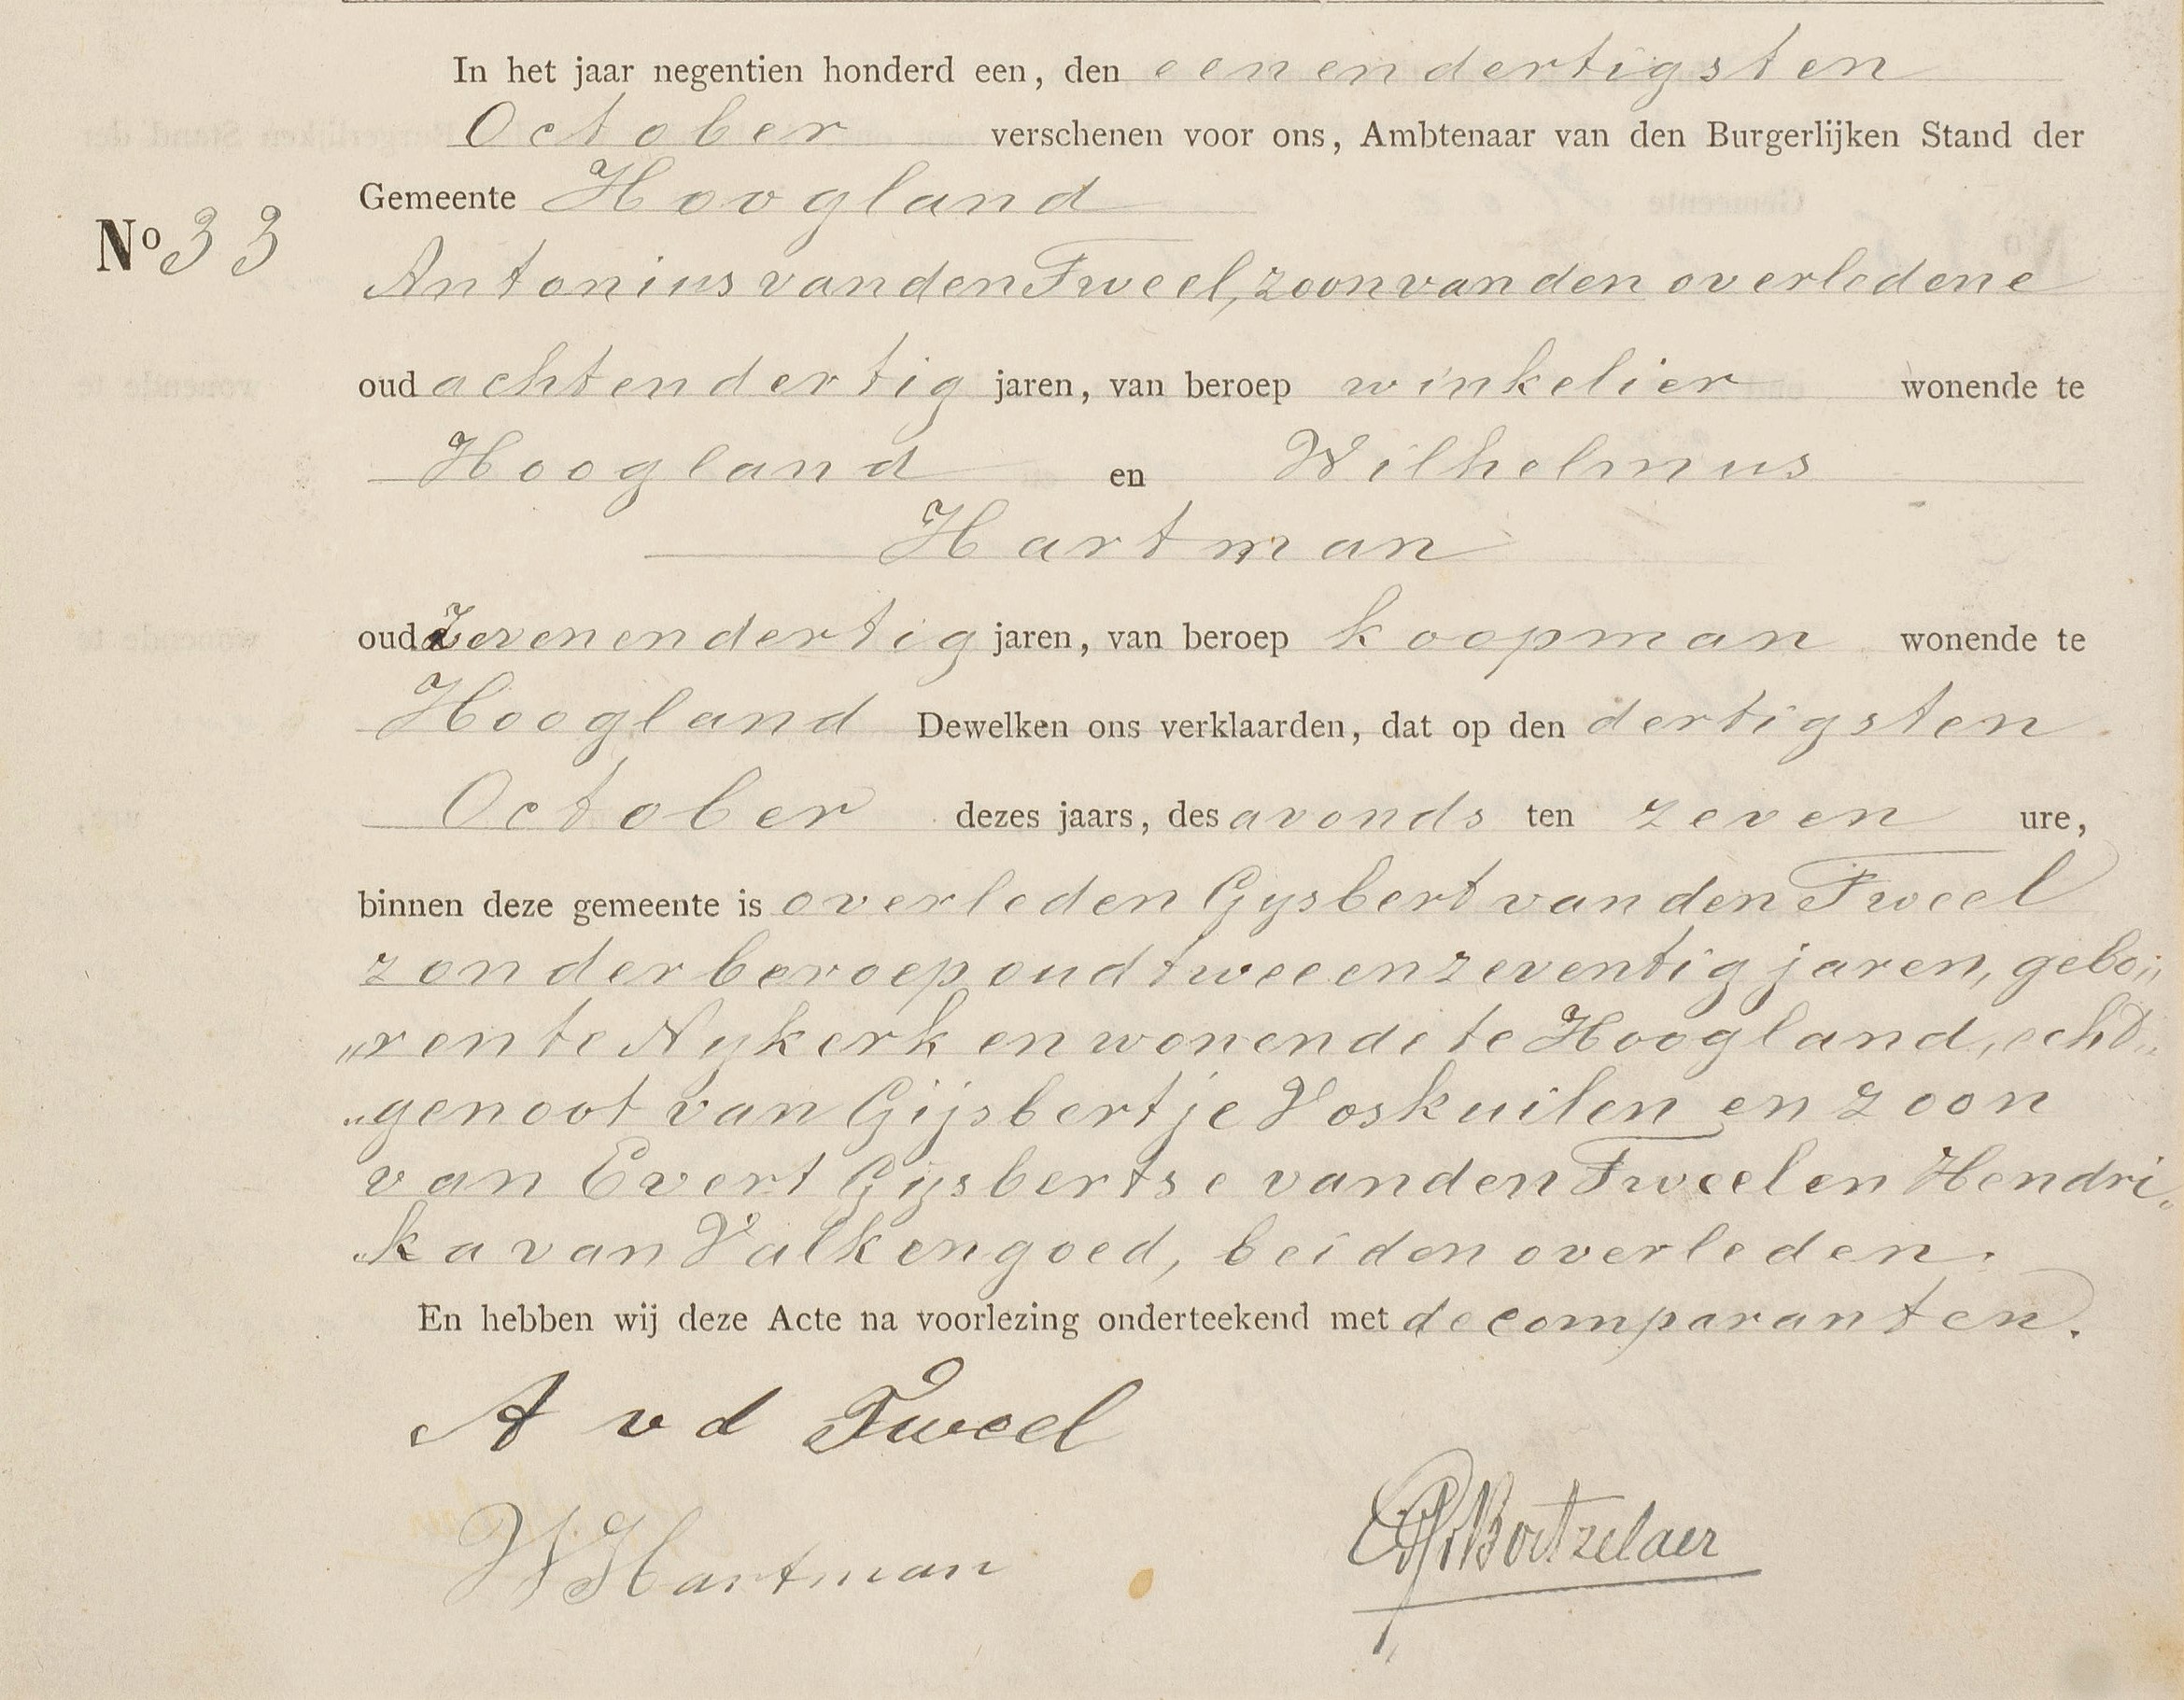 In het jaar negentien honderd een, den eenendertigsten
October verschenen voor ons, Ambtenaar van den Burgerlijken Stand der
Gemeente Hoogland
No 33
Antonius van den Tweel, zoon van den overledene
oud achtendertig jaren, van beroep winkelier wonende te
Hoogland en Wilhelmus
Hartman
oud zevenendertig jaren, van beroep koopman wonende te
Hoogland Dewelken ons verklaarden, dat op den dertigsten
October dezes jaars, des avonds ten zeven ure,
binnen deze gemeente is overleden Gysbert van den Tweel
zonder beroep oud tweeenzeventig jaren, gebo„
„ren te Nykerk en wonende te Hoogland, echt„
„genoot van Gijsbertje Voskuilen en zoon
van Evert Gijsbertse van den Tweel en Hendri„
„ka van Valkengoed, beiden overleden.
En hebben wij deze Acte na voorlezing onderteekend met de comparanten.
A v d Tweel
W Hartman
Boetzelaer